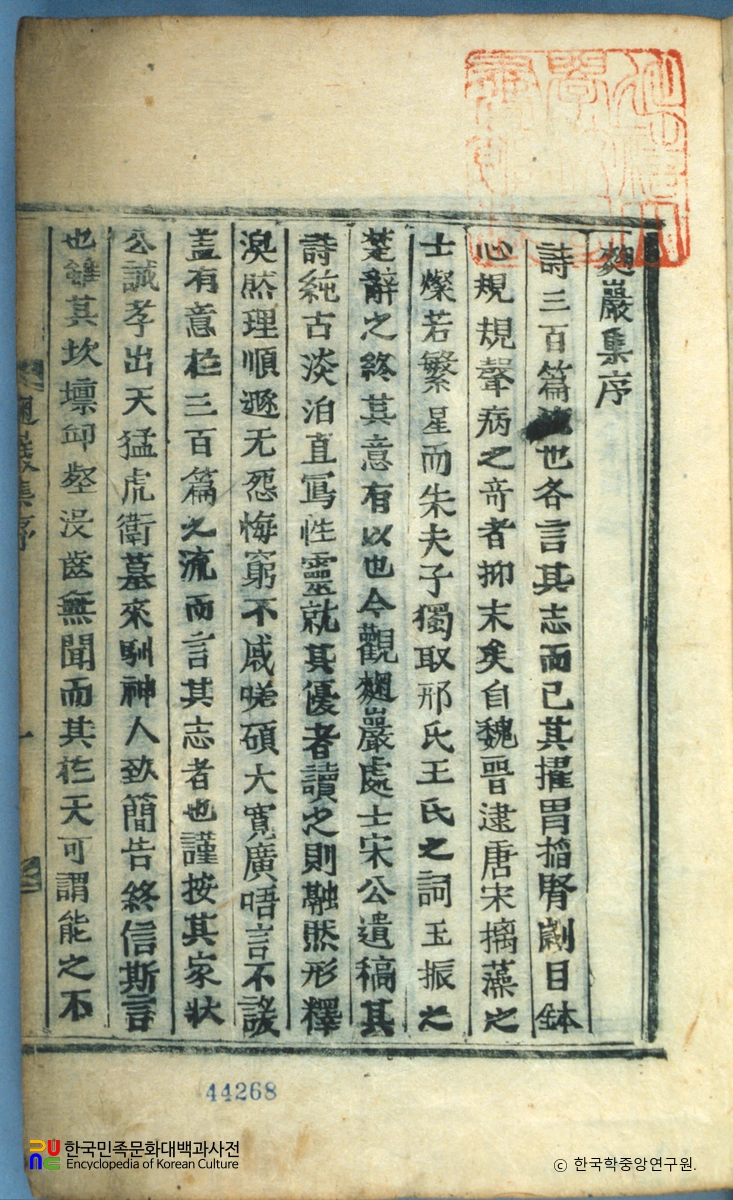 麹巖集序
詩三百篇 也各言其志而已其擢胃搯腎劌目鉥
心規規聲病之奇者抑末矣自魏晉逮唐宋摛藻之
士燦若繁星而朱夫子獨取邢氏王氏之詞玉振之
楚辭之終其意有以也今觀麹巖處士宋公遺稿其
詩純古淡泊直寫性靈就其優者讀之則融然形釋
渙然理順遯无怨悔窮不戚嗟碩大寬廣唔言不諼
盖有意於三百篇之流而言其志者也謹按其家狀
公誠孝出天猛虎衛墓來馴神人致簡告終信斯言
也雖其坎壈卬壑沒齒無聞而其於天可謂能之不
集序
一
44268
한국민족문화대백과사전
Encyclopedia of Korean Culture
ⓒ 한국학중앙연구원.